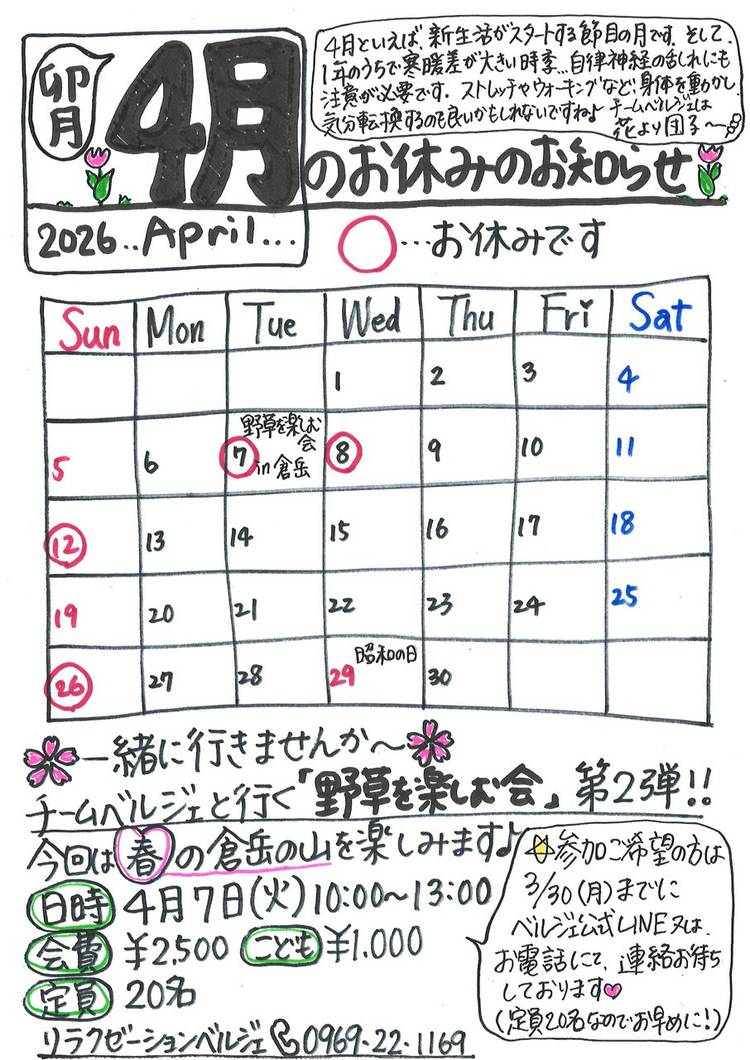 卯月
4月
2026..April...
4月といえば、新生活がスタートする節目の月です。そして、
1年のうちで寒暖差が大きい時季…自律神経の乱れにも
注意が必要です。ストレッチやウォーキングなど身体を動かし
気分転換するのも良いかもしれないですね♪ チームベルジェは
花より団子〜
のお休みのお知らせ
○…お休みです
Sun Mon Tue Wed Thu Fri Sat
1 2 3 4
野草を楽しむ会 in 倉岳
5 6 7 8 9 10 11
12 13 14 15 16 17 18
19 20 21 22 23 24 25
昭和の日
26 27 28 29 30
一緒に行きませんか〜
チームベルジェと行く「野草を楽しむ会」第2弾!!
今回は春の倉岳の山を楽しみます♪
日時 4月7日(火)10:00〜13:00
会費 ¥2,500 こども ¥1.000
定員 20名
リラクゼーションベルジェ 0969.22.1169
参加ご希望の方は
3/30(月)までに
ベルジェ公式LINE又は、
お電話にて、連絡お待ち
しております♥
(定員20名なのでお早めに!)